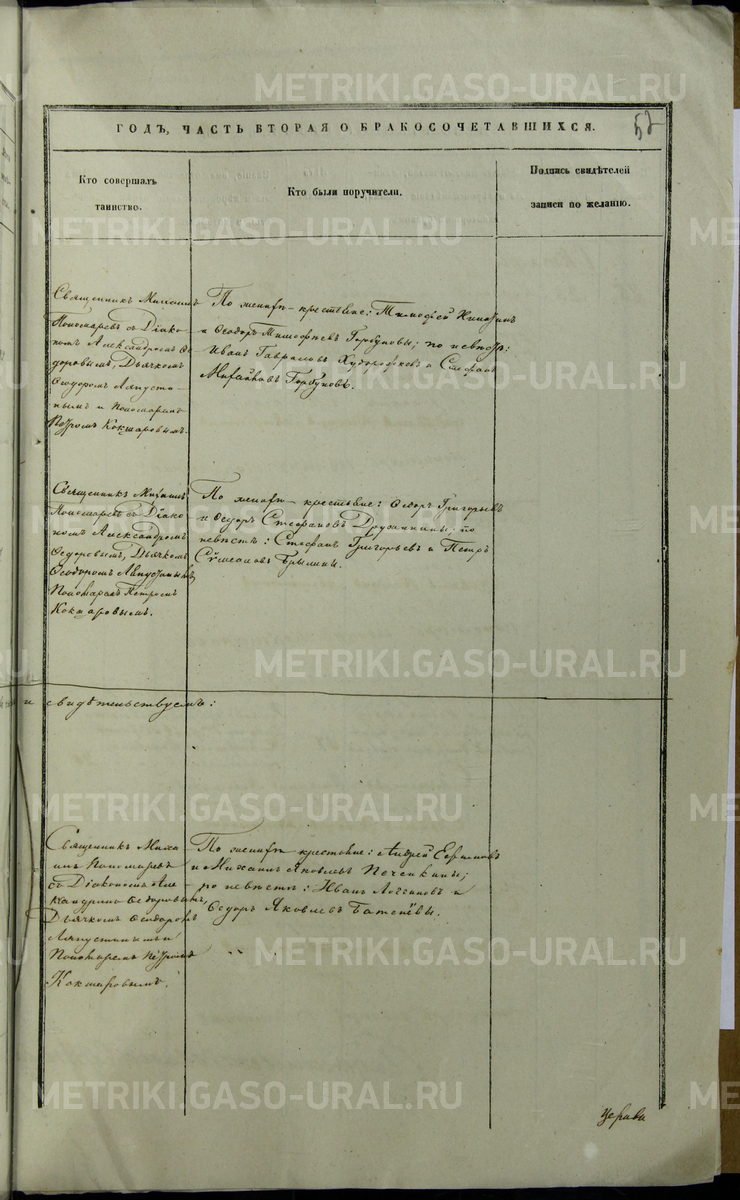 ГОДЪ, ЧАСТЬ ВТОРАЯ О БРАКОСОЧЕТАВШИХСЯ.
Кто совершалъ
таинство.
Кто были поручители.
Подпись свидѣтелей
записи по желанію.
Священникъ Михаилъ
Пономаревъ съ Діако-
номъ Александромъ Ѳе-
доровымъ, Дьячкомъ
Ѳеодоромъ Ляпусти-
нымъ и Пономаремъ
Петромъ Кокшаровымъ.
По женихѣ – крестьяне: Тимоѳей
и Ѳеодоръ Тимоѳеевъ Горбуновы; по невѣстѣ:
Иванъ Гавриловъ и Стефанъ
Михайловъ Горбуновъ.
Священникъ Михаилъ
Пономаревъ съ Діако-
номъ Александромъ
Ѳедоровымъ, Дьячкомъ
Ѳеодоромъ Ляпустинымъ,
Пономаремъ Петромъ
Кокшаровымъ.
По женихѣ – крестьяне: Ѳедоръ Григорьевъ
и Ѳедоръ Стефановъ Дружинины; по
невѣстѣ: Стефанъ Григорьевъ и Петръ
Сѵмеоновъ Брылины.
и свидѣтельствуемъ:
Священникъ Миха-
илъ Пономаревъ
съ Діакономъ Але-
ксандромъ Ѳедоровымъ,
Дьячкомъ Ѳеодоромъ
Ляпустинымъ и
Пономаремъ Петромъ
Кокшаровымъ.
По женихѣ крестьяне: Андрей Ефимовъ
и Михаилъ Яковлевъ Печенкины;
по невѣстѣ: Иванъ Логиновъ и
Ѳедоръ Яковлевъ Батенёвы.
церкви
METRIKI.GASO-URAL.RU